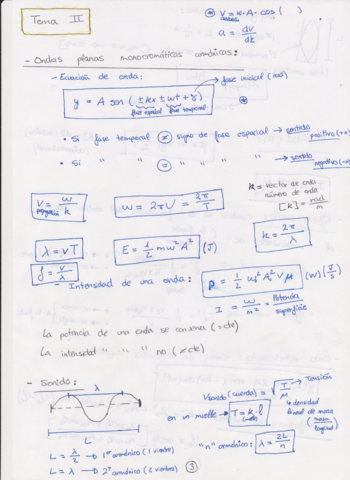 Tema II
V = w·A·cos( )
a = dv/dt
- Ondas planas monocromáticas armónicas:
- Ecuación de onda:
fase inicial (rad)
y = A sen (±kx ± wt + γ)
fase espacial fase temporal
• Si fase temporal ≠ signo de fase espacial → sentido positivo (+x)
• Si " " = " " " → sentido negativo (-x)
V = w/k
w = 2πν = 2π/T
k = vector de onda
número de onda
[k] = rad/m
k = 2π/λ
λ = vT
E = 1/2 m w² A² (J)
f = v/λ
- Intensidad de una onda:
P = 1/2 w² A² V μ (W) | J/s
I = W/m² = Potencia/superficie
La potencia de una onda se conserva (= cte)
La intensidad " " " no (≠ cte)
- Sonido:
λ
L
V = √(T/μ) → Tensión
densidad lineal de masa (masa/longitud)
en un muelle → T = k·l
L = λ/2 → 1er armónico (1 vientre)
L = λ → 2º armónico (2 vientres)
"n" armónico: λ = 2L/n
3